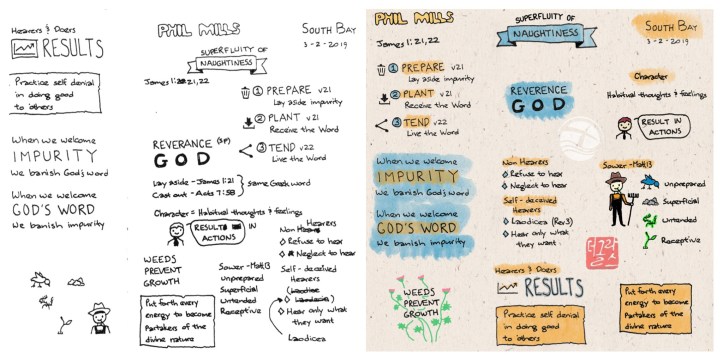 Hearers & Doers
RESULTS
Practice self denial
in doing good
to others
When we welcome
IMPURITY
We banish God's word
When we welcome
GOD'S WORD
We banish impurity
PHIL MILLS
SOUTH BAY
3-2-2019
SUPERFLUITY OF
NAUGHTINESS
James 1:21,22
① PREPARE v21
Lay aside impurity
② PLANT v21
Receive the Word
③ TEND v22
Live the Word
REVERANCE (SP)
GOD
Lay aside - James 1:21
Cast out - Acts 7:58
same Greek word
Character = Habitual thoughts & feelings
RESULT IN
ACTIONS
WEEDS
PREVENT
GROWTH
Sower - Matt 13
Unprepared
Superficial
Untended
Receptive
Hearers
Non
Refuse to hear
Neglect to hear
Self - deceived
Hearers
Hear only what
they want
Laodicea
Put forth every
energy to become
Partakers of the
divine nature
PHIL MILLS
James 1:21,22
SUPERFLUITY OF
NAUGHTINESS
SOUTH BAY
3-2-2019
① PREPARE v21
Lay aside impurity
② PLANT v21
Receive the Word
③ TEND v22
Live the Word
REVERENCE
GOD
Character
Habitual thoughts & feelings
RESULT IN
ACTIONS
When we welcome
IMPURITY
We banish God's word
When we welcome
GOD'S WORD
We banish impurity
Non Hearers
Refuse to hear
Neglect to hear
Self-deceived
Hearers
Laodicea (Rev 3)
Hear only what
they want
Sower-Matt 13
unprepared
Superficial
Untended
Receptive
WEEDS
PREVENT
GROWTH
Hearers & Doers
RESULTS
Practice self denial
in doing good
to others
Put forth every
energy to become
Partakers of the
divine nature